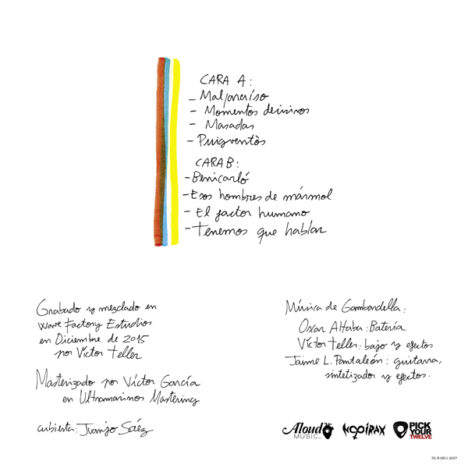 CARA A:
- Malparaíso
- Momentos decisivos
- Masadas
- Puigventòs
CARA B:
- Benicarló
- Esos hombres de mármol
- El factor humano
- Tenemos que hablar
Grabado y mezclado en
Wave Factory Estudios
en Diciembre de 2015
por Víctor Teller
Masterizado por Víctor García
en Ultramarinos Mastering
cubierta: Juanjo Sáez
Música de Gambardella:
Oscar Altaba: Batería
Víctor Teller: bajo y efectos
Jaime L. Pantaleón: guitarra,
sintetizador y efectos.
Aloud MUSIC
PICK YOUR TWELVE